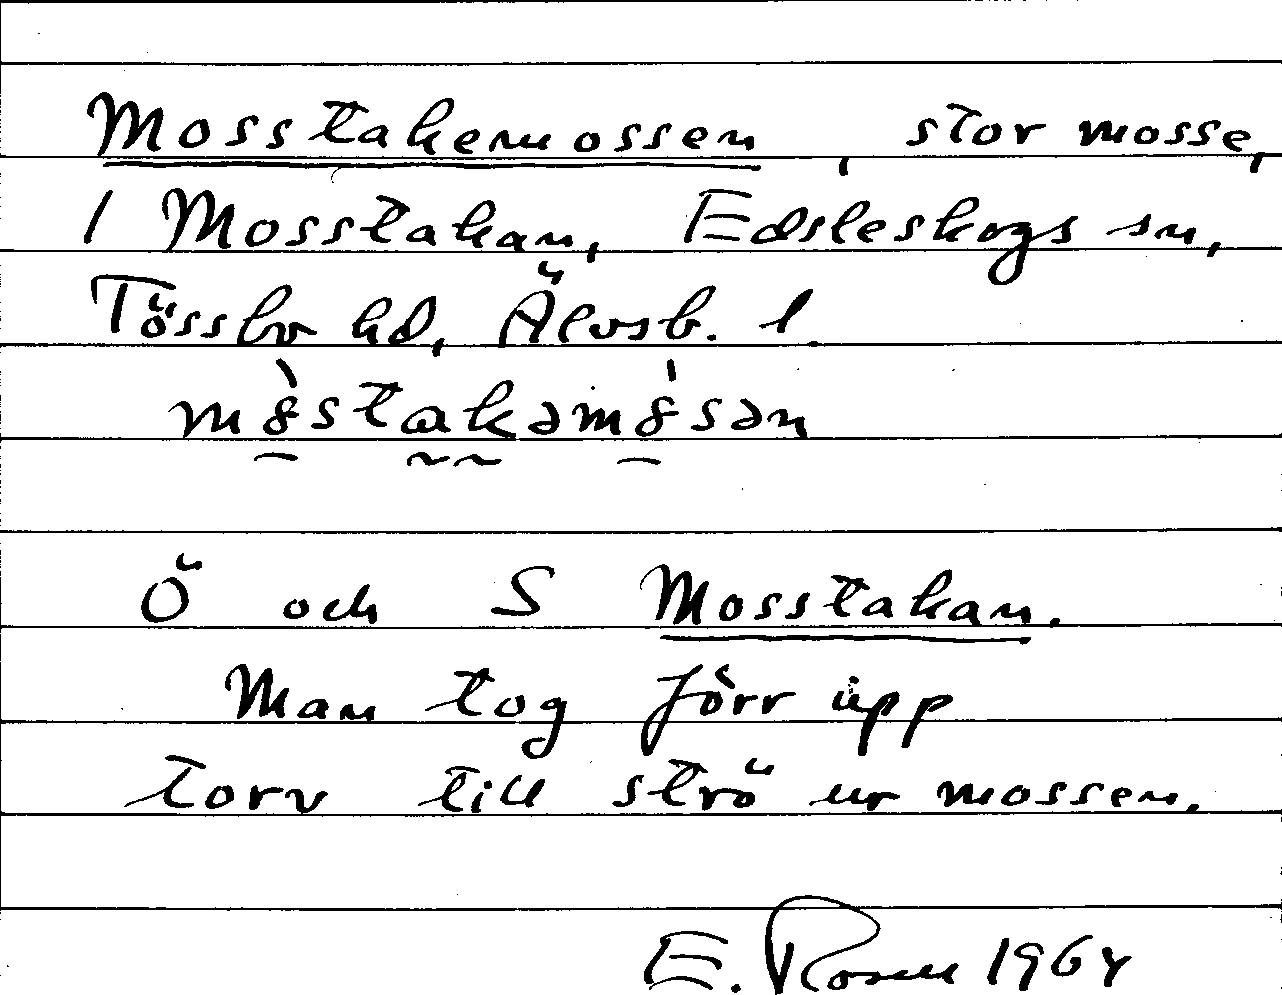 Mosstakemossen, stor mosse,
I Mosstakan, Edsleskogs sn,
Tössbo hd, Älvsb. l.
mo̊̀stakəmo̊́sən
Ö och S Mosstakan.
Man tog förr upp
torv till strö ur mossen.
E. Rosen 1964